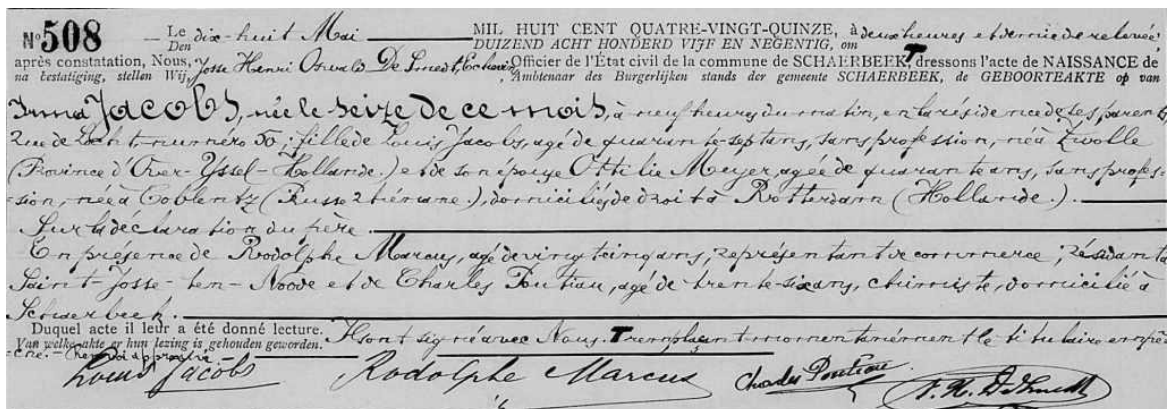 N° 508 Le dix-huit Mai MIL HUIT CENT QUATRE-VINGT-QUINZE, à deux heures et demie de relevée,
Den DUIZEND ACHT HONDERD VIJF EN NEGENTIG, om
après constatation, Nous, Josse Henri Oswald De Smedt, Echevin, Officier de l'État civil de la commune de SCHAERBEEK T dressons l'acte de NAISSANCE de
na bestatiging, stellen Wij, Ambtenaar des Burgerlijken stands der gemeente SCHAERBEEK, de GEBOORTEAKTE op van
Irma Jacobs, née le seize de ce mois, à neuf heures du matin, en la résidence de ses parents
rue de Locht numéro 50; fille de Louis Jacobs, agé de quarante-sept ans, sans profession, né à Zwolle
(Province d'Over-Yssel-Hollande.) et de son épouse Ottilie Meyer, agée de quarante ans, sans profes-
-sion, née à Coblentz (Prusse rhénane.), domiciliés de droit à Rotterdam (Hollande.).
Sur la déclaration du père.
En présence de Rodolphe Marcus, agé de vingt cinq ans, représentant de commerce, résidant à
Saint-Josse-ten-Noode et de Charles Poutiau, agé de trente-six ans, chimiste, domicilié à
Schaerbeek.
Duquel acte il leur a été donné lecture. Ils ont signé avec Nous. T remplaçant momentanément le titulaire empê-
Van welke akte er hun lezing is gehouden geworden.
-ché. - Renvoi approuvé -
Louis Jacobs Rodolphe Marcus Charles Poutiau J. H. De Smedt